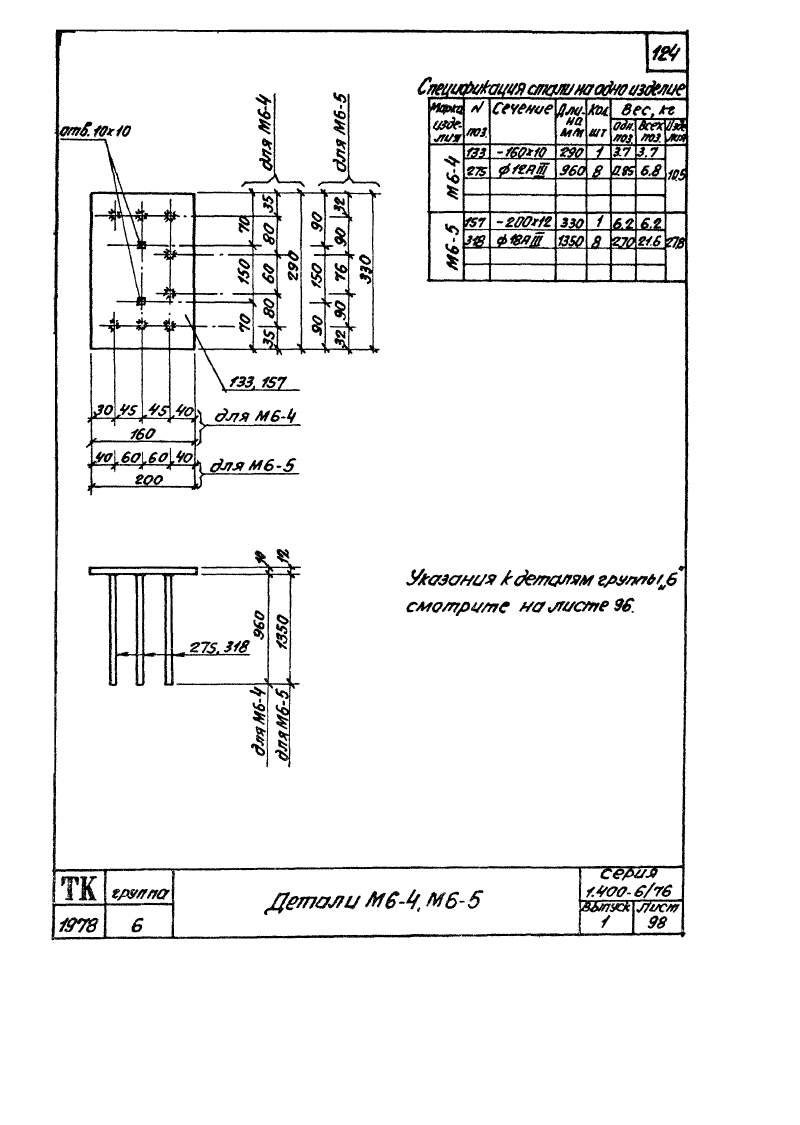 124
Спецификация стали на одно изделие
Марка изде-лия N поз. Сечение Дли-на мм Кол. шт Вес, кг
Одн. поз. Всех поз. Изде лия
М6-4
133 -160х10 290 1 3.7 3.7
275 ф12АIII 960 8 0.85 6.8 10,5
М6-5
157 -200х12 330 1 6.2 6.2
318 ф18АIII 1350 8 2.70 21.6 27,8
отв. 10х10
для М6-4
для М6-5
70 150 70
35 80 60 80 35
290
90 150 90
32 90 76 90 32
330
133, 157
30 45 45 40
160
для М6-4
40 60 60 40
200
для М6-5
10 12
960
1350
275, 318
для М6-4
для М6-5
Указания к деталям группы „6“
смотрите на листе 96.
ТК
группа
1978
6
Детали М6-4, М6-5
серия
1.400-6/76
Выпуск Лист
1 98